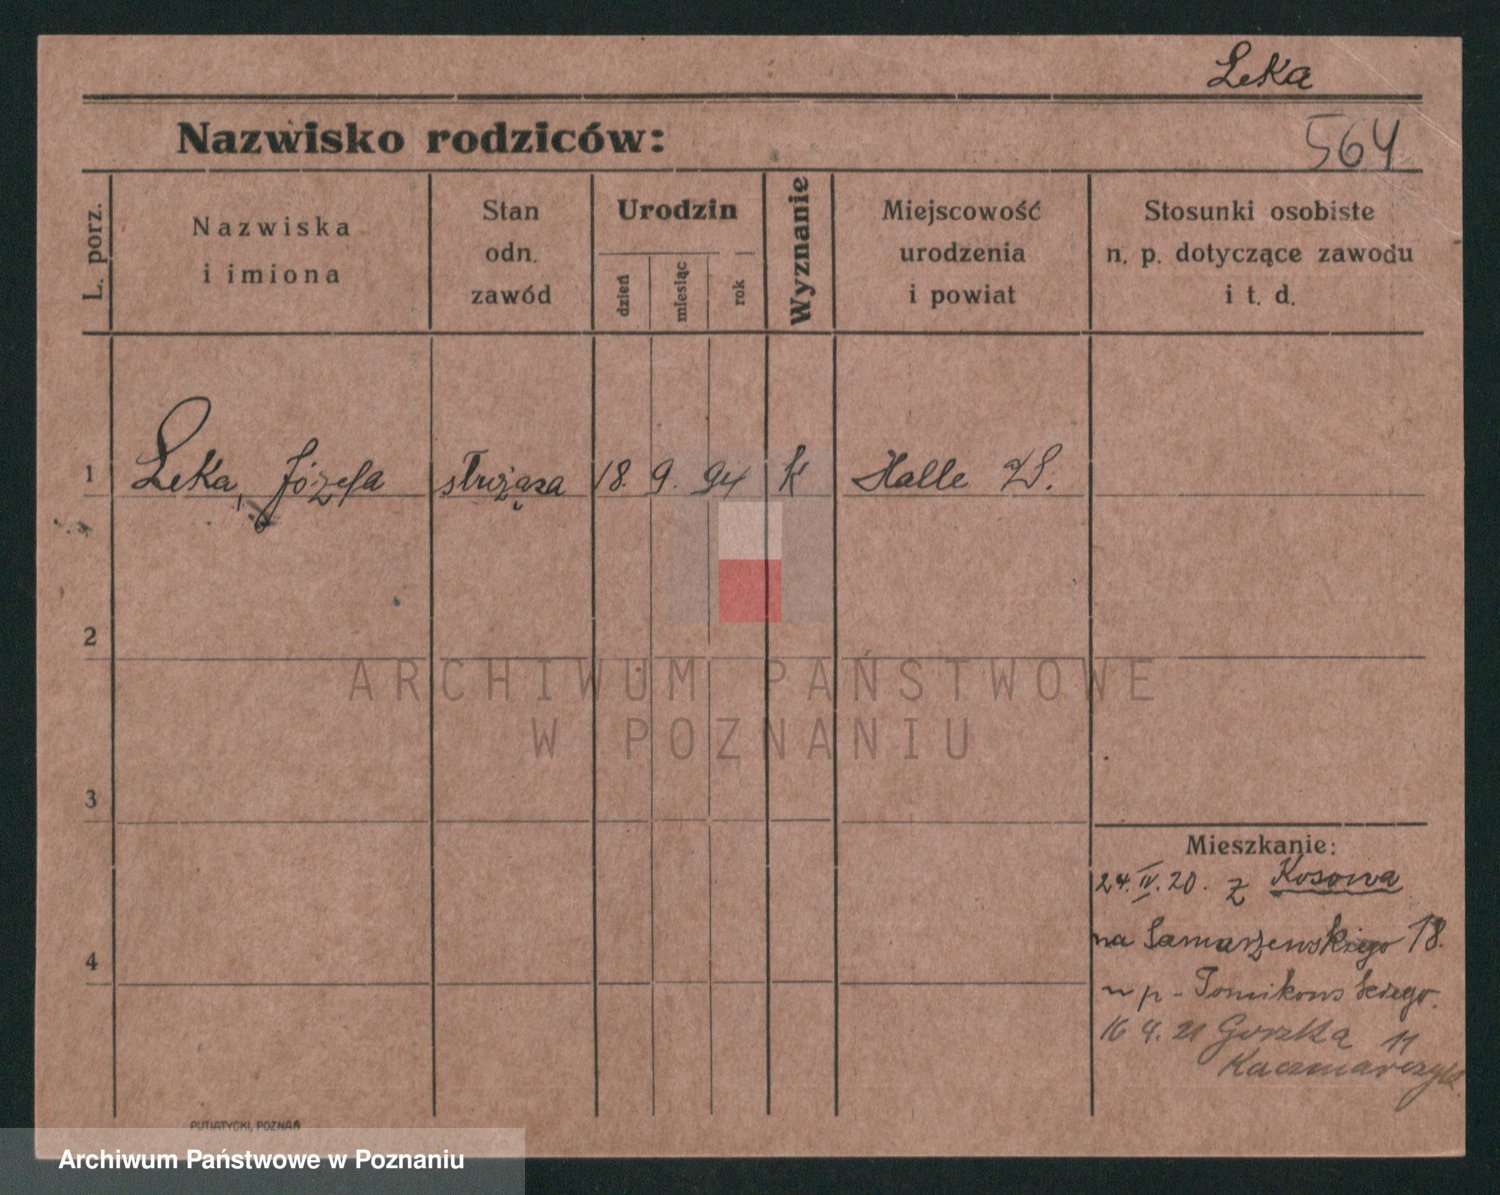 Leka
Nazwisko rodziców:
564
L. porz.
Nazwiska
i imiona
Stan
odn.
zawód
Urodzin
dzień
miesiąc
rok
Wyznanie
Miejscowość
urodzenia
i powiat
Stosunki osobiste
n. p. dotyczące zawodu
i t. d.
1 Leka, Józefa 18. 9. 94 k Halle
2
ARCHIWUM PAŃSTWOWE
W POZNANIU
3
Mieszkanie:
24.IV.20. z Kosowa
na Samarzewskiego 18.
4
u p - Tomikowskiego.
16 4. 21 11
Kaczmarczyk
PUTIATYCKI, POZNAŃ
Archiwum Państwowe w Poznaniu